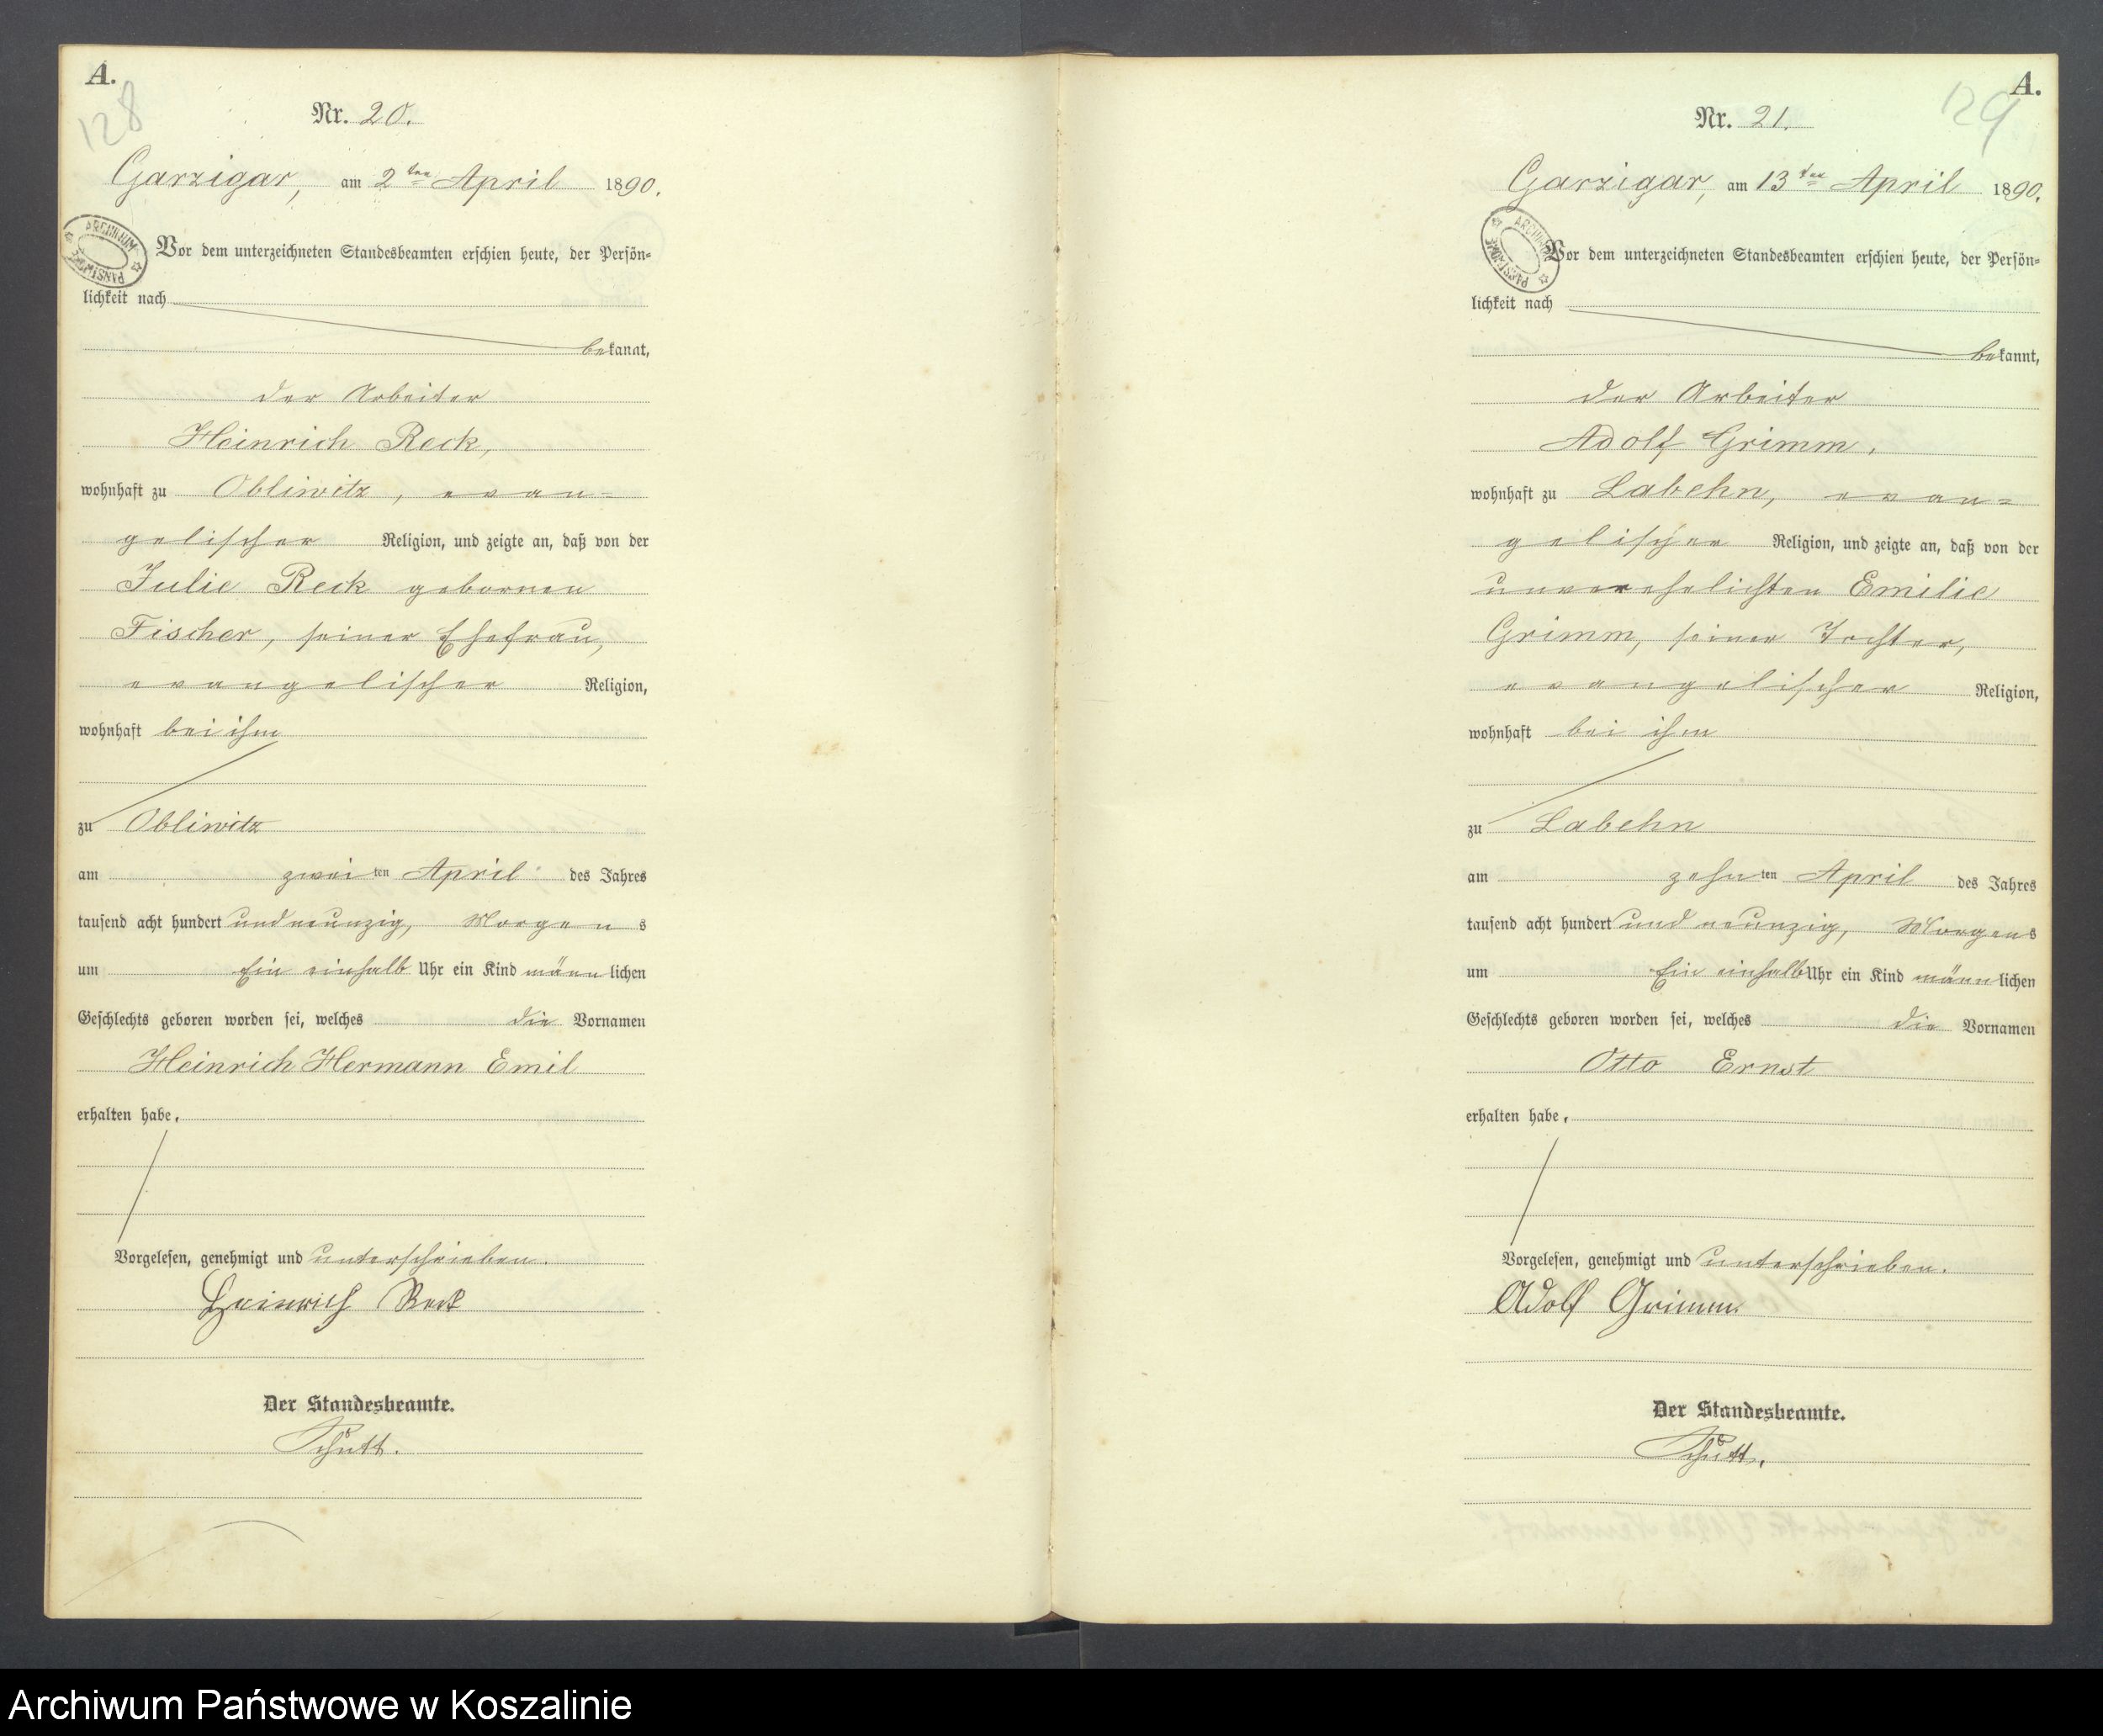 A.
128
Nr. 20.
Garzigar, am 2ten April 1890.
ARCHIWUM PAŃSTWOWE
Vor dem unterzeichneten Standesbeamten erschien heute, der Persön-
lichkeit nach
bekannt,
der Arbeiter
Heinrich Reck,
wohnhaft zu Obliwitz, evan=
gelischer Religion, und zeigte an, daß von der
Julie Reck gebornen
Fischer, seiner Ehefrau,
evangelischer Religion,
wohnhaft bei ihm
zu Obliwitz
am zweiten April des Jahres
tausend acht hundert und neunzig, Morgens
um Ein einhalb Uhr ein Kind männlichen
Geschlechts geboren worden sei, welches die Vornamen
Heinrich Hermann Emil
erhalten habe.
Vorgelesen, genehmigt und unterschrieben.
Heinrich Reck
Der Standesbeamte.
Schütt.
A.
129
Nr. 21.
Garzigar, am 13ten April 1890.
ARCHIWUM PAŃSTWOWE
Vor dem unterzeichneten Standesbeamten erschien heute, der Persön-
lichkeit nach
bekannt,
der Arbeiter
Adolf Grimm,
wohnhaft zu Labehn, evan=
gelischer Religion, und zeigte an, daß von der
unverehelichten Emilie
Grimm, seiner Tochter,
evangelischer Religion,
wohnhaft bei ihm
zu Labehn
am zehnten April des Jahres
tausend acht hundert und neunzig, Morgens
um Ein einhalb Uhr ein Kind männlichen
Geschlechts geboren worden sei, welches die Vornamen
Otto Ernst
erhalten habe.
Vorgelesen, genehmigt und unterschrieben.
Adolf Grimm
Der Standesbeamte.
Schütt.
Archiwum Państwowe w Koszalinie